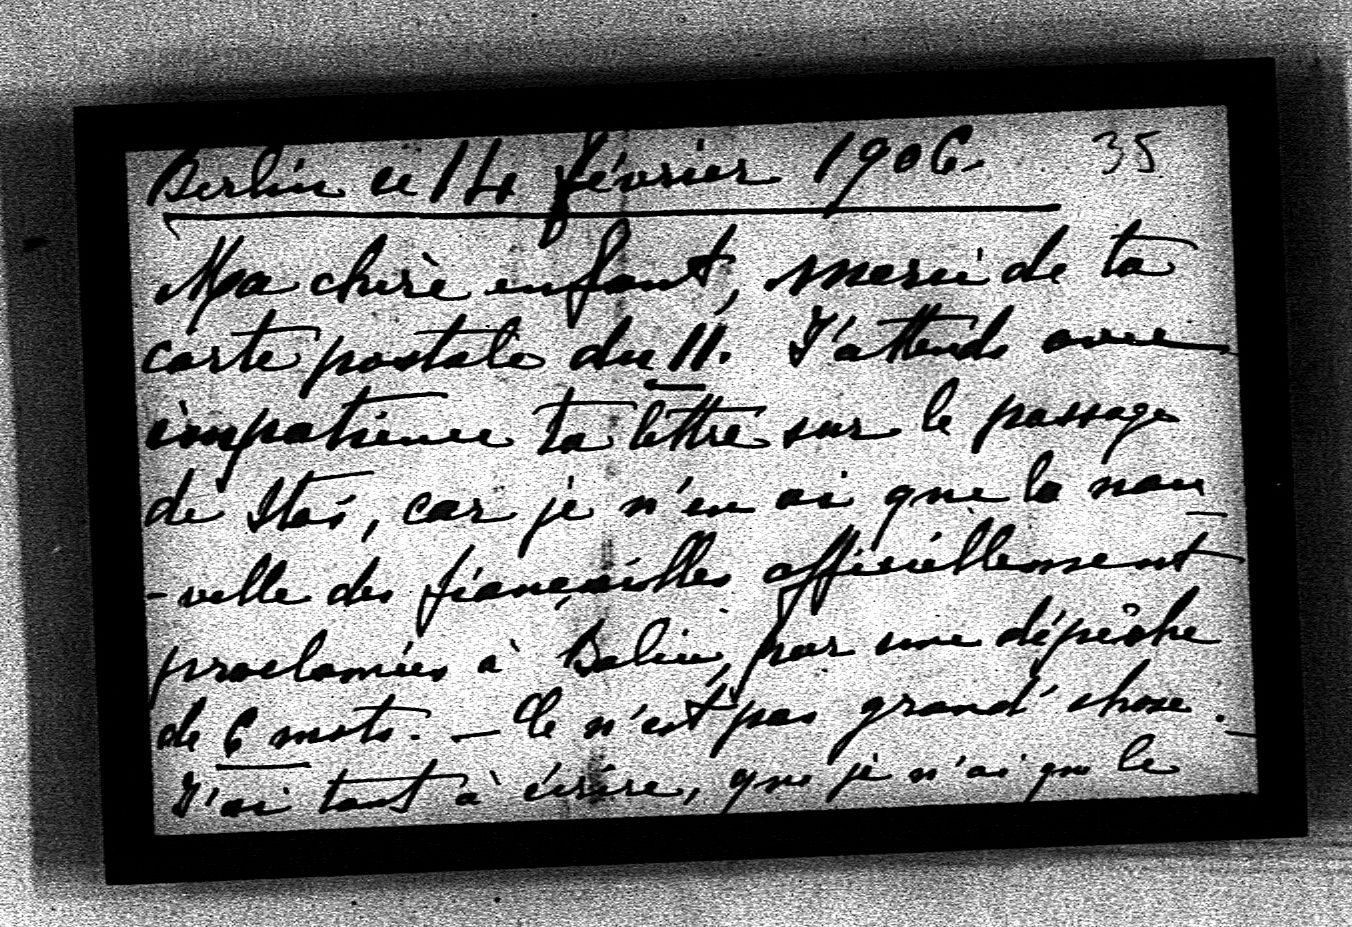 Berlin ce 14 février 1906. 35
Ma chère enfant, merci de ta
carte postale du 11. J'attends avec
impatience ta lettre sur le passage
de Stas, car je n'en ai que la nou
-velle des fiançailles officiellement
proclamées à Balice, par une dépêche
de 6 mots. — Ce n'est pas grand'chose. —
J'ai tant à écrire, que je n'ai que le